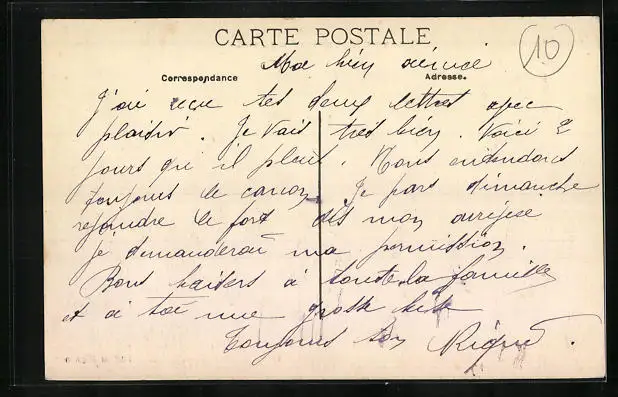 CARTE POSTALE
10
Ma bien aimée
Correspondance
Adresse.
J'ai reçu tes deux lettres avec
plaisir. Je vais très bien. Voici 2
jours qu'il pleut. Nous entendons
toujours le canon. Je pars dimanche
rejoindre le fort dès mon arrivée
je demanderai ma permission.
Bons baisers à toute la famille
et à toi une grosse bise
Toujours ton